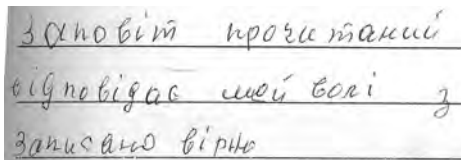 заповіт прочитаний
відповідає моїй волі з
записано вірно